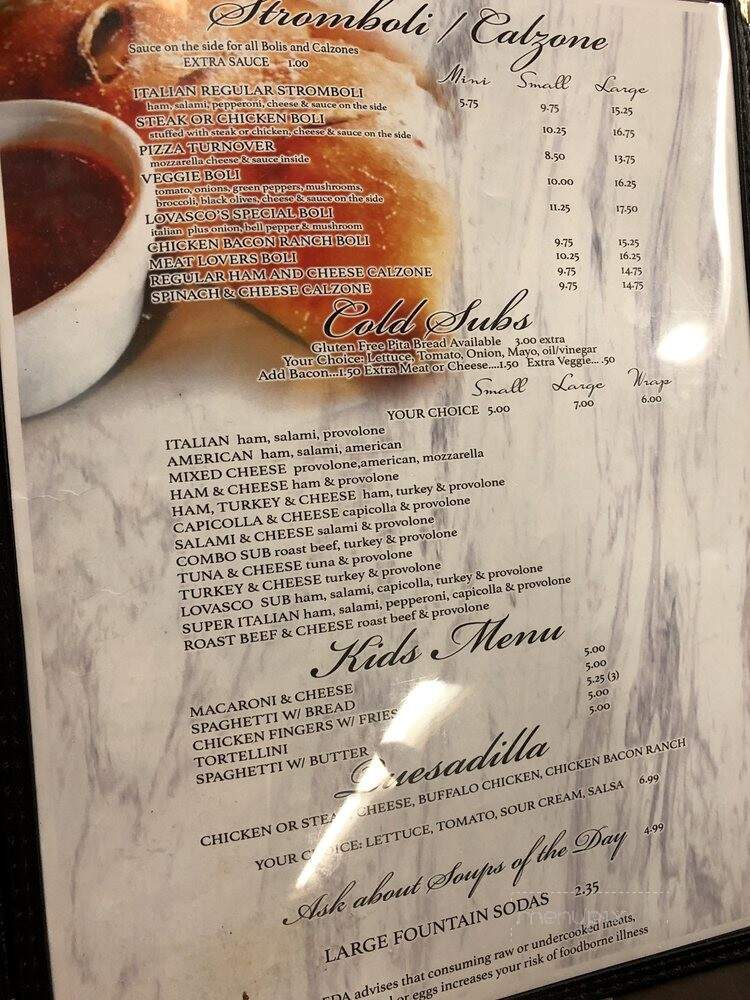 Stromboli / Calzone
Sauce on the side for all Bolis and Calzones
EXTRA SAUCE 1.00
Mini Small Large
ITALIAN REGULAR STROMBOLI 5.75 9.75 15.25
ham, salami, pepperoni, cheese & sauce on the side
STEAK OR CHICKEN BOLI 10.25 16.75
stuffed with steak or chicken, cheese & sauce on the side
PIZZA TURNOVER 8.50 13.75
mozzarella cheese & sauce inside
VEGGIE BOLI 10.00 16.25
tomato, onions, green peppers, mushrooms,
broccoli, black olives, cheese & sauce on the side
LOVASCO'S SPECIAL BOLI 11.25 17.50
italian plus onion, bell pepper & mushroom
CHICKEN BACON RANCH BOLI 9.75 15.25
MEAT LOVERS BOLI 10.25 16.25
REGULAR HAM AND CHEESE CALZONE 9.75 14.75
SPINACH & CHEESE CALZONE 9.75 14.75
Cold Subs
Gluten Free Pita Bread Available 3.00 extra
Your Choice: Lettuce, Tomato, Onion, Mayo, oil/vinegar
Add Bacon...1.50 Extra Meat or Cheese....1.50 Extra Veggie... .50
Small Large Wrap
YOUR CHOICE 5.00 7.00 6.00
ITALIAN ham, salami, provolone
AMERICAN ham, salami, american
MIXED CHEESE provolone,american, mozzarella
HAM & CHEESE ham & provolone
HAM, TURKEY & CHEESE ham, turkey & provolone
CAPICOLLA & CHEESE capicolla & provolone
SALAMI & CHEESE salami & provolone
COMBO SUB roast beef, turkey & provolone
TUNA & CHEESE tuna & provolone
TURKEY & CHEESE turkey & provolone
LOVASCO SUB ham, salami, capicolla, turkey & provolone
SUPER ITALIAN ham, salami, pepperoni, capicolla & provolone
ROAST BEEF & CHEESE roast beef & provolone
Kids Menu
MACARONI & CHEESE 5.00
SPAGHETTI W/ BREAD 5.00
CHICKEN FINGERS W/ FRIES 5.25 (3)
TORTELLINI 5.00
SPAGHETTI W/ BUTTER 5.00
Quesadilla
CHICKEN OR STEAK CHEESE, BUFFALO CHICKEN, CHICKEN BACON RANCH
YOUR CHOICE: LETTUCE, TOMATO, SOUR CREAM, SALSA 6.99
Ask about Soups of the Day 4.99
LARGE FOUNTAIN SODAS 2.35
menupix
FDA advises that consuming raw or undercooked meats,
or eggs increases your risk of foodborne illness